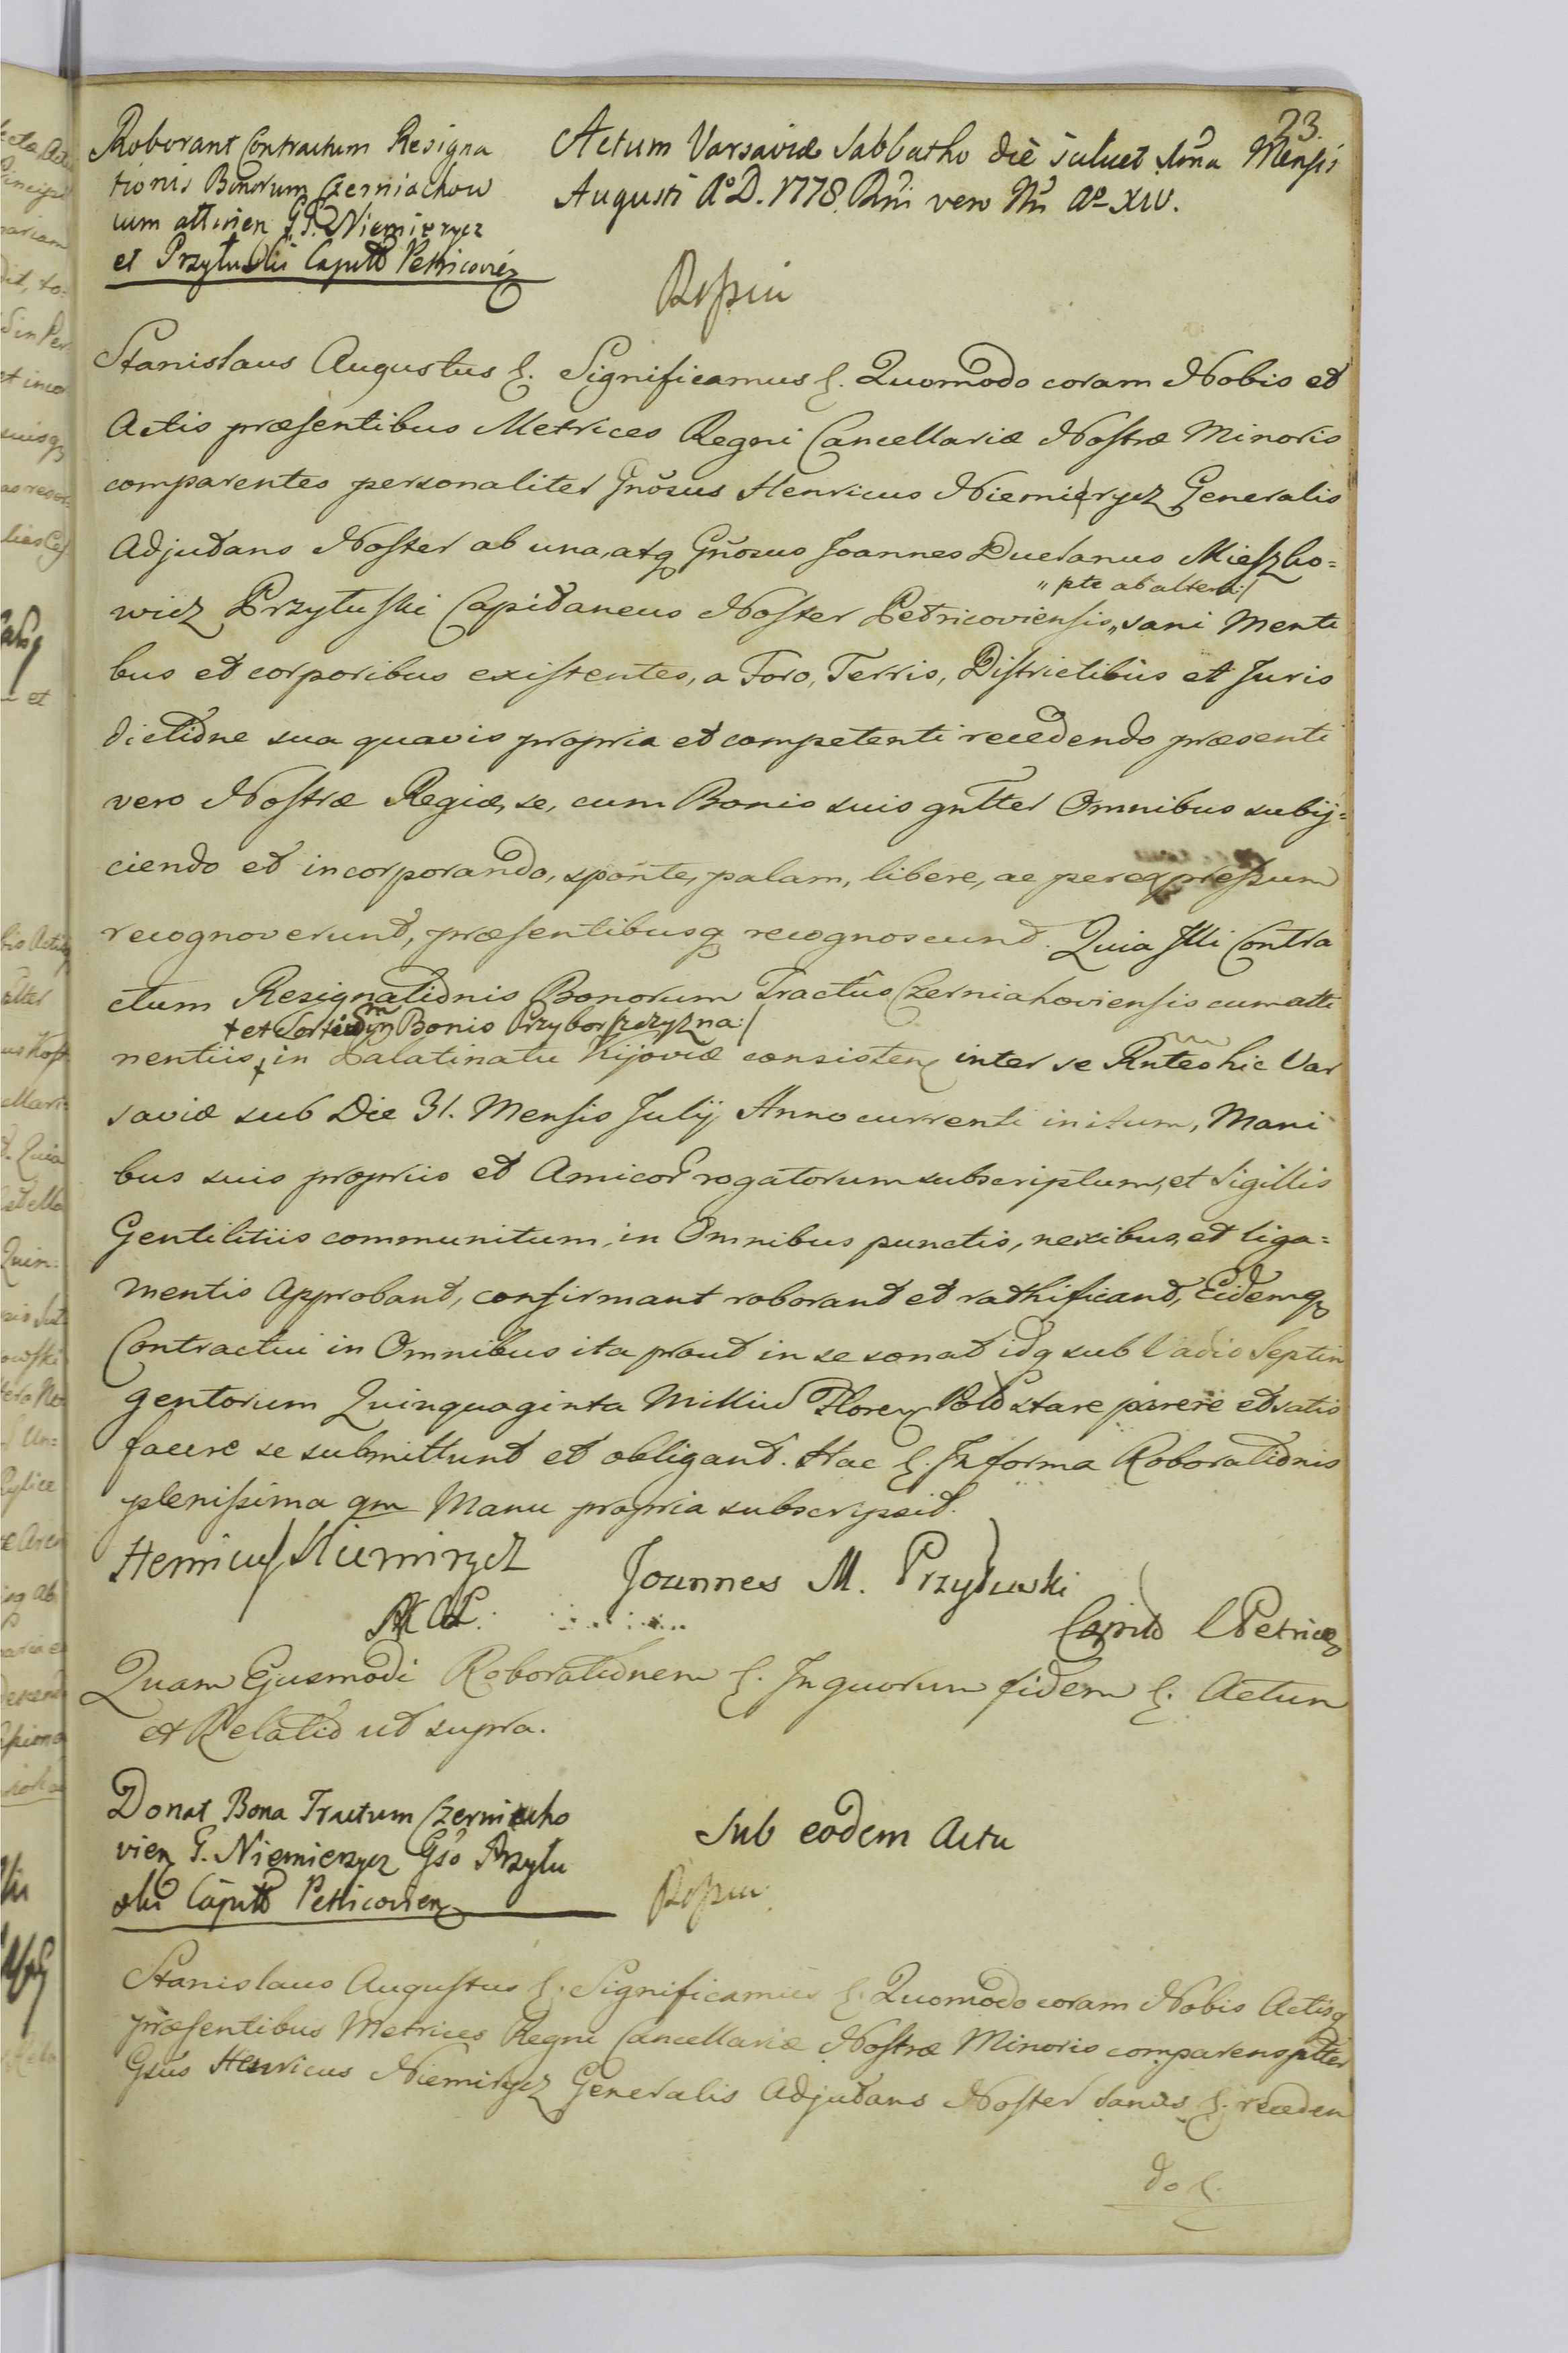 23.
Roborant Contractum Resigna
tionis Bonorum Czerniachow
cum attinen G.G. Niemierycz
et Przyłuski Capitt Petricovien
Actum Varsaviæ Sabbatho die scilicet 1ma Mensis
Augusti A°D. 1778. Rni vero Nri A° XIV.
Stanislaus Augustus &. Significamus &. Quomodo coram Nobis et
Actis præsentibus Metrices Regni Cancellariæ Nostræ Minoris
comparentes personaliter Gnosus Henricus Niemierycz Generalis
Adjutans Noster ab una, atq Gnosus Joannes Mieszko=
wicz Przyłuski Capitaneus Noster Petricoviensis „ sani Menti
„ pte ab altera :/
bus et corporibus existentes, a Foro, Terris, Districtibus et Juris
dictione sua quavis propria et competenti recedendo præsenti
vero Nostræ Regiæ, se, cum Bonis suis gnlter Omnibus subij=
ciendo et incorporando, sponte, palam, libere, ac per expressum
recognoverunt, præsentibusq recognoscunt. Quia Illi Contra
ctum Resignationis Bonorum Tractus Czerniahoviensis cum atti
+ et Sortium in Bonis Przyborszczyzna :/
nentiis + in Palatinatu Kijoviæ consisten inter se Rntes hic Var
saviæ sub Die 31. Mensis Julij Anno currenti initum, Mani
bus suis propriis et Amicor rogatorum subscriptum, et Sigillis
Gentilitiis communitum, in Omnibus punctis, nexibus, et liga=
mentis Approbant, confirmant roborant et rathificant, Eidemq
Contractui in Omnibus ita prout in se sonat idq sub Vadio Septin
gentorum Quinquaginta Milliu Floren Pol stare parere et satis
facere se submittunt et obligant. Hac &. In forma Roborationis
plenissima qm Manu propria subscripsit.
Henricus Niemirycz
Joannes M. Przyłuski
Capits Petricov
Quam Ejusmodi Roborationem &. In quorum fidem &. Actum
et Relatio ut supra.
Donat Bona Tractum Czerniacho
vien G. Niemierycz Gso Przyłu
ski Capitt Petricovien
Sub eodem Actu
Stanislaus Augustus &. Significamus &. Quomodo coram Nobis Actisq
præsentibus Metrices Regni Cancellariæ Nostræ Minoris comparens plter
Gsus Henricus Niemirycz Generalis Adjutans Noster sanus &. receden
do &.